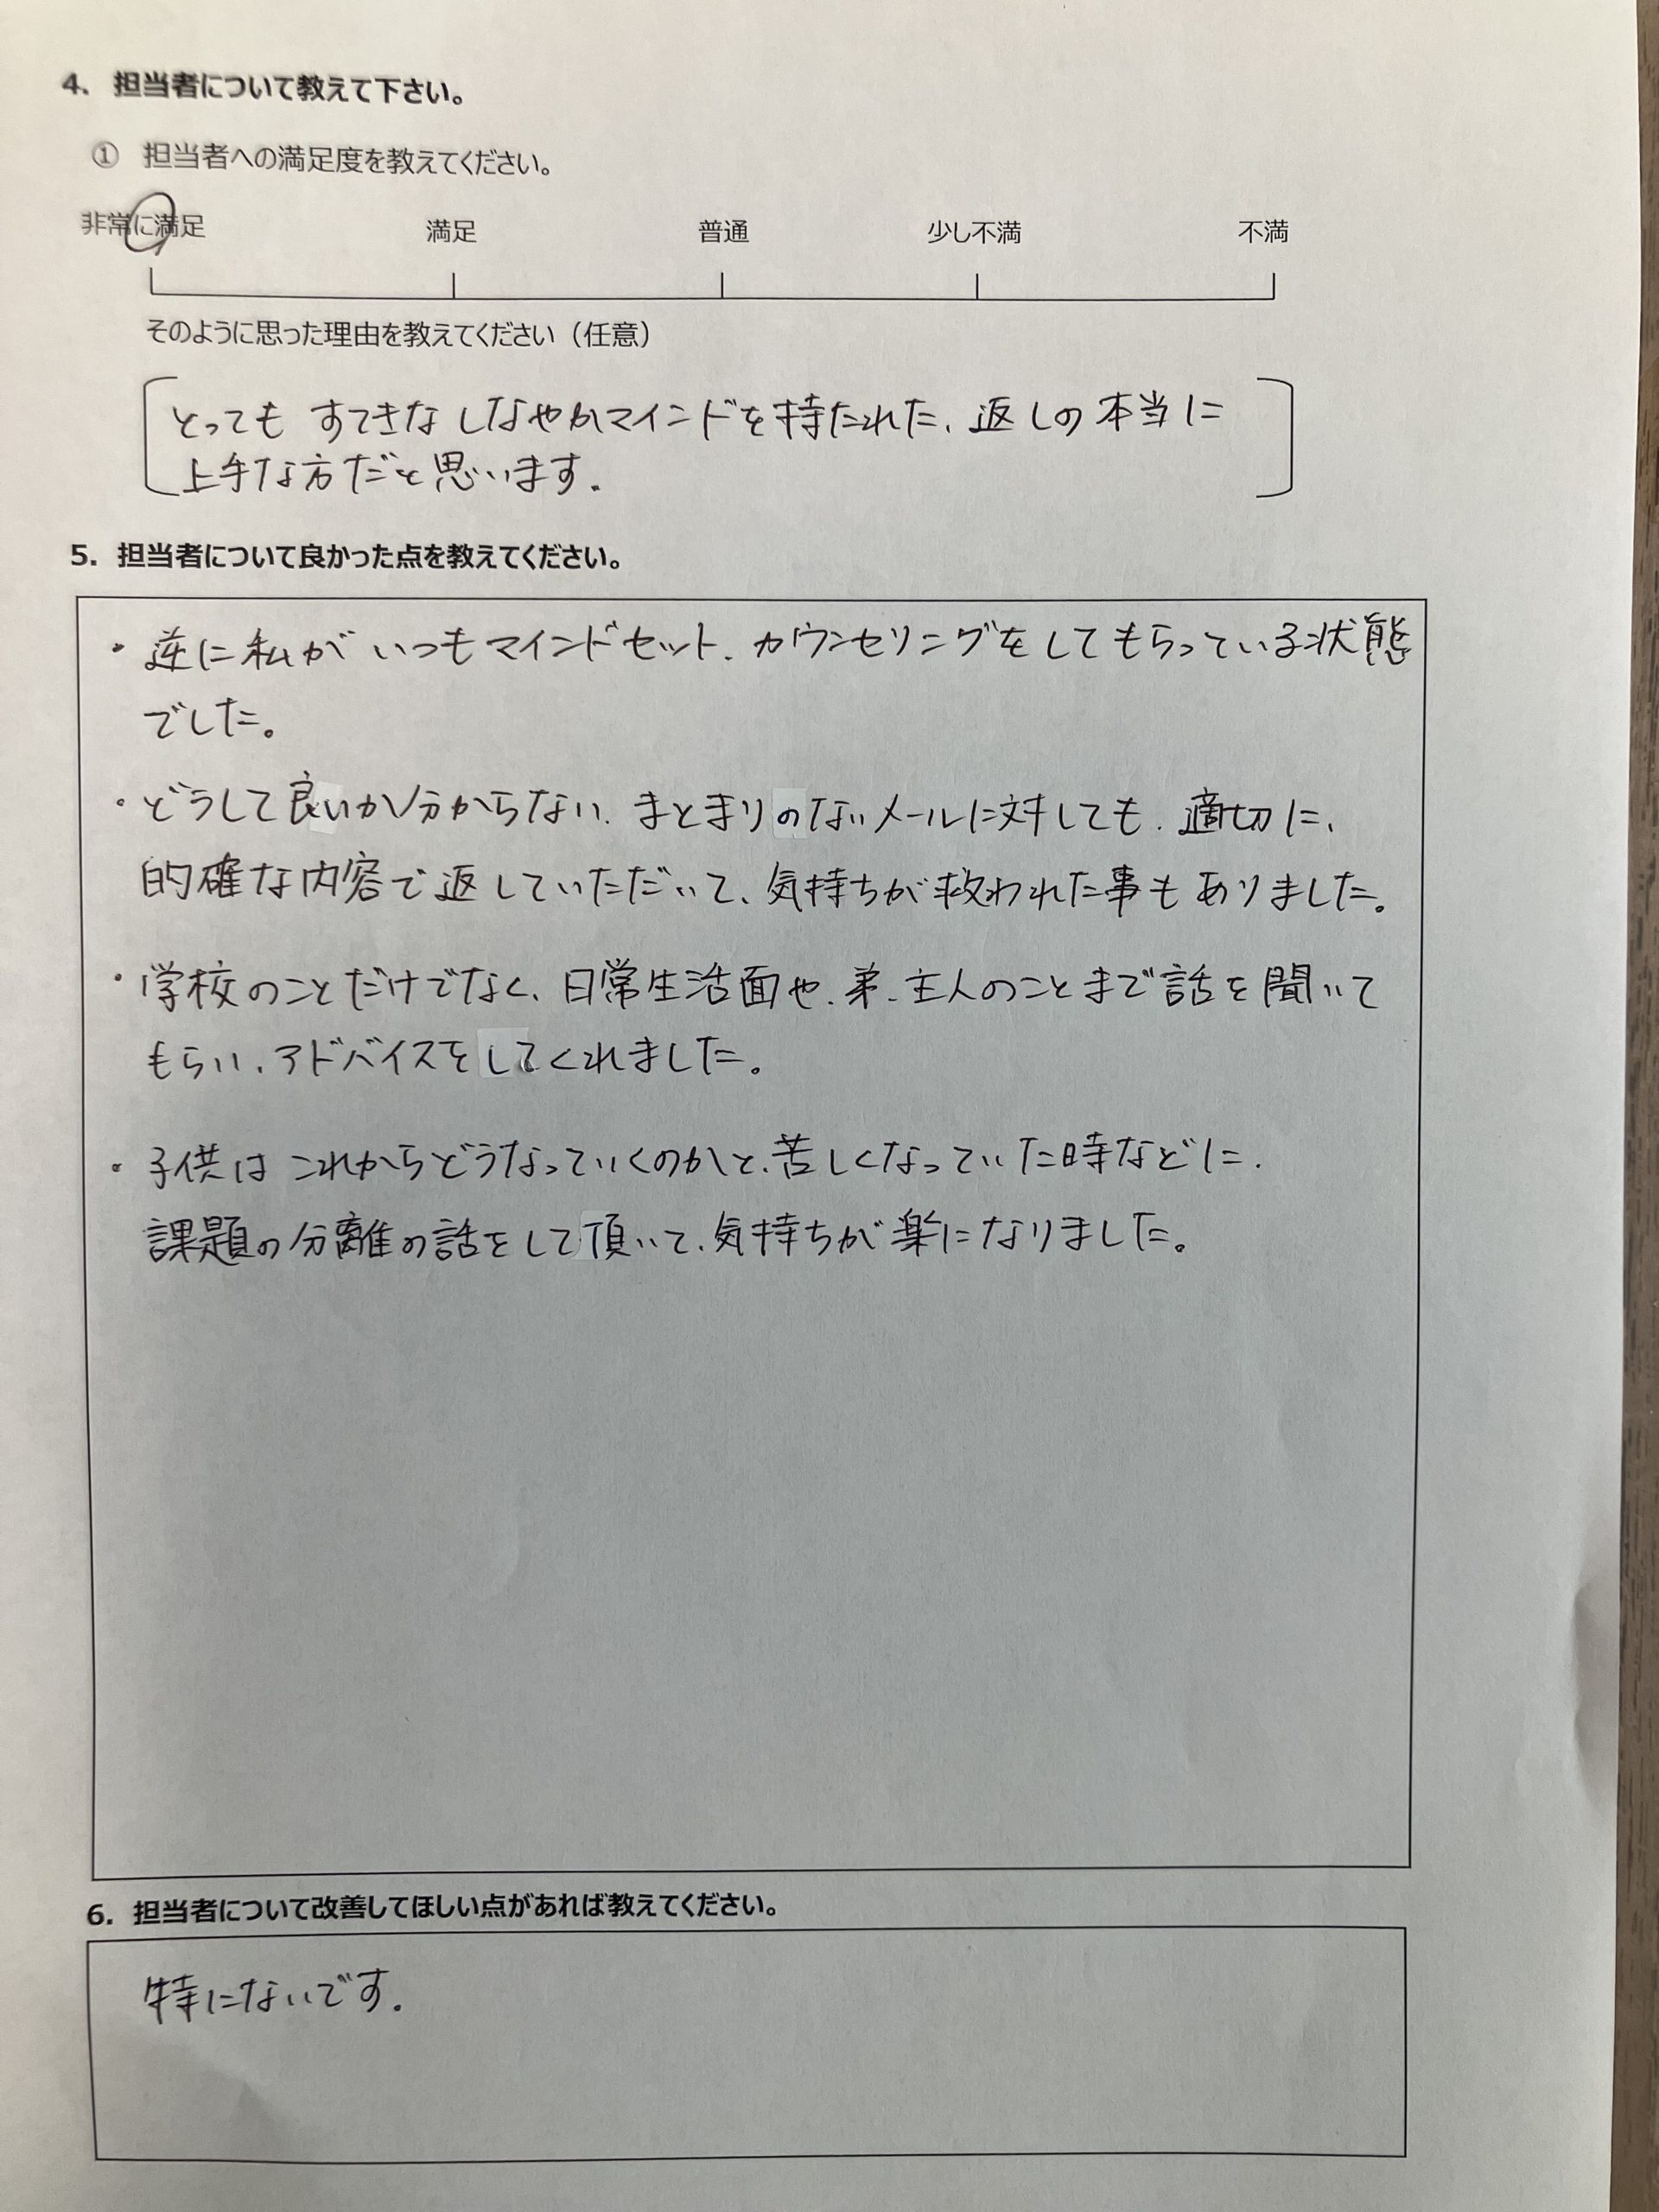 4. 担当者について教えて下さい。
① 担当者への満足度を教えてください。
非常に満足 満足 普通 少し不満 不満
そのように思った理由を教えてください（任意）
とっても すてきな しなやかマインドを持たれた、返しの本当に
上手な方だと思います。
5. 担当者について良かった点を教えてください。
・逆に私が いつもマインドセット、カウンセリングをしてもらっている状態
でした。
・どうして良いか分からない、まとまりのないメールに対しても、適切に、
的確な内容で返していただいて、気持ちが救われた事もありました。
・学校のことだけでなく、日常生活面や、弟、主人のことまで話を聞いて
もらい、アドバイスをしてくれました。
・子供は これからどうなっていくのかと、苦しくなっていた時などに、
課題の分離の話をして頂いて、気持ちが楽になりました。
6. 担当者について改善してほしい点があれば教えてください。
特にないです。